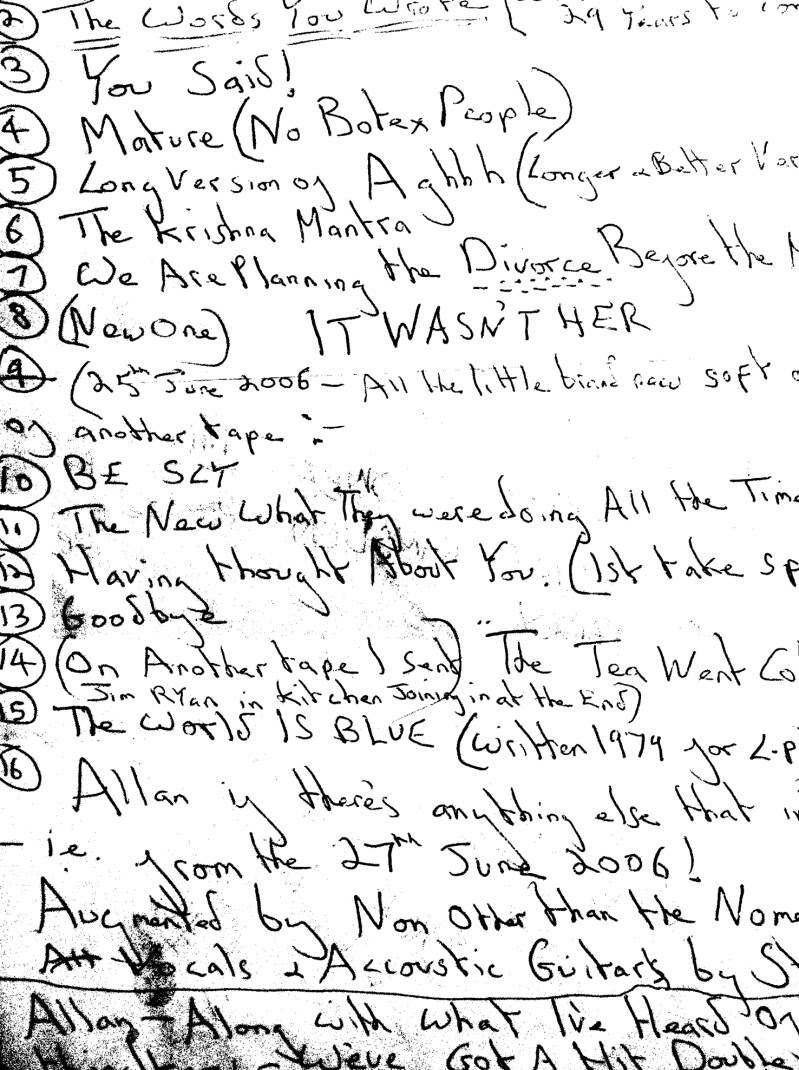 2 The Words You Wrote (29 Years to
3 You Said!
4 Mature (No Botex People)
5 Long Version of Aghhh (Longer & Better Ver
6 The Krishna Mantra
7 We Are Planning the Divorce Before the
8 (New One) IT WASN'T HER
9 (25th June 2006 - All the little brand new soft
of another tape :-
10 BE SLY
11 The New What They were doing All the Time
12 Having thought About You. (1st take sp
13 Goodbye
14 (On Another tape I sent) "The Tea Went Co
(Jim RYan in kitchen Joining in at the End)
15 The World IS BLUE (written 1979 for L.P
16 Allan if there's anything else that i
- i.e. from the 27th June 2006!
Augmented by Non Other than the Nome
All Vocals & Accoustic Guitars by St
Allan - Along with what I've Heard On
We've Got A Hit Double